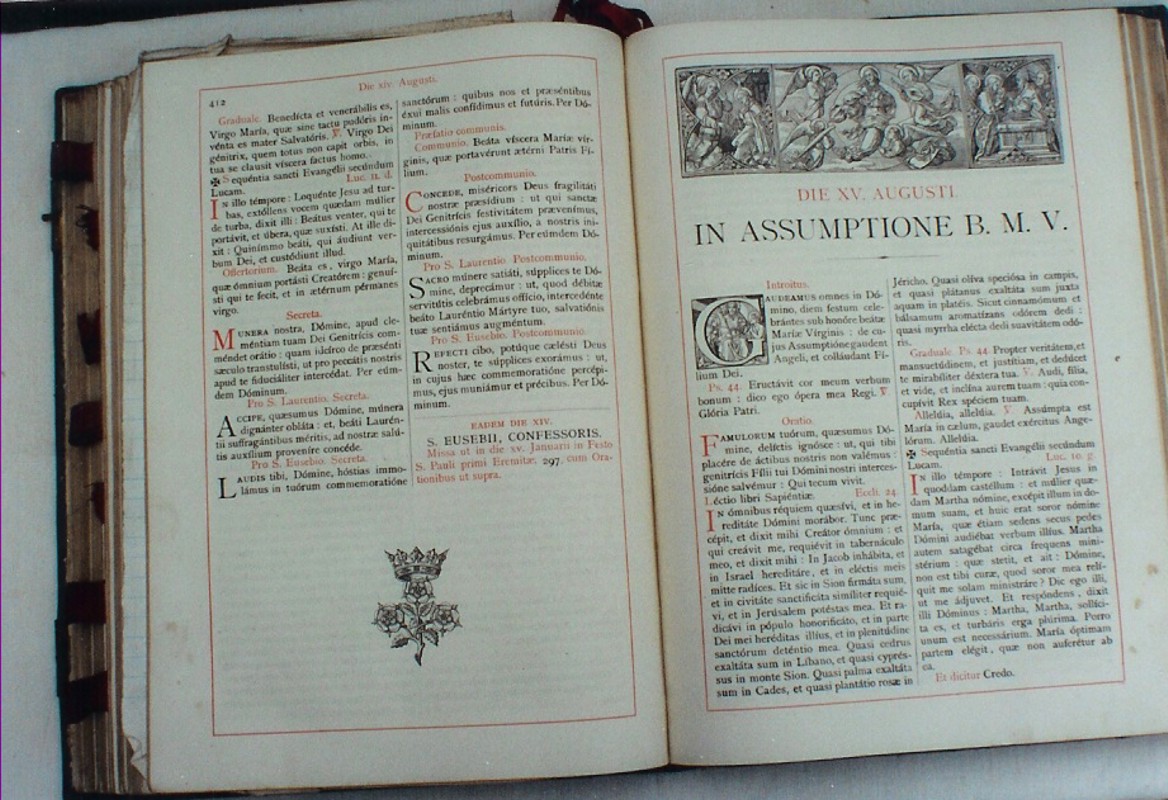 412
Die xiv. Augusti.
Graduale. Benedícta et venerábilis es,
Virgo María, quæ sine tactu pudóris in-
vénta es mater Salvatóris. ℣. Virgo Dei
génitrix, quem totus non capit orbis, in
tua se clausit víscera factus homo.
✠ Sequéntia sancti Evangélii secúndum
Lucam. Luc. 11. d.
IN illo témpore : Loquénte Jesu ad tur-
bas, extóllens vocem quædam múlier
de turba, dixit illi : Beátus venter, qui te
portávit, et úbera, quæ suxísti. At ille di-
xit : Quinímmo beáti, qui áudiunt ver-
bum Dei, et custódiunt illud.
Offertorium. Beáta es, virgo María,
quæ ómnium portásti Creatórem : genuí-
sti qui te fecit, et in ætérnum pérmanes
virgo.
Secreta.
MUNERA nostra, Dómine, apud cle-
méntiam tuam Dei Genitrícis com-
méndet orátio : quam idcírco de præsénti
sæculo transtulísti, ut pro peccátis nostris
apud te fiduciáliter intercédat. Per eúm-
dem Dóminum.
Pro S. Laurentio. Secreta.
ACCIPE, quæsumus Dómine, múnera
dignánter obláta : et, beáti Laurén-
tii suffragántibus méritis, ad nostræ salú-
tis auxílium proveníre concéde.
Pro S. Eusebio. Secreta.
LAUDIS tibi, Dómine, hóstias immo-
lámus in tuórum commemoratióne
sanctórum : quibus nos et præséntibus
éxui malis confídimus et futúris. Per Dó-
minum.
Præfatio communis.
Communio. Beáta víscera Maríæ vír-
ginis, quæ portavérunt ætérni Patris Fí-
lium.
Postcommunio.
CONCEDE, miséricors Deus fragilitáti
nostræ præsídium : ut qui sanctæ
Dei Genitrícis festivitátem prævenímus,
intercessiónis ejus auxílio, a nostris ini-
quitátibus resurgámus. Per eúmdem Dó-
minum.
Pro S. Laurentio Postcommunio.
SACRO múnere satiáti, súpplices te Dó-
mine, deprecámur : ut, quod débitæ
servitútis celebrámus offício, intercedénte
beáto Lauréntio Mártyre tuo, salvatiónis
tuæ sentiámus augméntum.
Pro S. Eusebio. Postcommunio.
REFECTI cibo, potúque cælésti Deus
noster, te súpplices exorámus : ut,
in cujus hæc commemoratióne percépi-
mus, ejus muniámur et précibus. Per Dó-
minum.
EADEM DIE XIV.
S. EUSEBII, CONFESSORIS.
Missa ut in die xv. Januarii in Festo
S. Pauli primi Eremitæ, 297. cum Ora-
tionibus ut supra.
DIE XV. AUGUSTI.
IN ASSUMPTIONE B. M. V.
Introitus.
GAUDEAMUS omnes in Dó-
mino, diem festum cele-
brántes sub honóre beátæ
Maríæ Vírginis : de cu-
jus Assumptióne gaudent
Angeli, et colláudant Fí-
lium Dei.
Ps. 44. Eructávit cor meum verbum
bonum : dico ego ópera mea Regi. ℣.
Glória Patri.
Oratio.
FAMULORUM tuórum, quæsumus Dó-
mine, delíctis ignósce : ut, qui tibi
placére de áctibus nostris non valémus :
genitrícis Fílii tui Dómini nostri interces-
sióne salvémur : Qui tecum vivit.
Léctio libri Sapiéntiæ. Eccli. 24.
IN ómnibus réquiem quæsívi, et in he-
reditáte Dómini morábor. Tunc præ-
cépit, et dixit mihi Creátor ómnium : et
qui creávit me, requiévit in tabernáculo
meo, et dixit mihi : In Jacob inhábita, et
in Israel hereditáre, et in eléctis meis
mitte radíces. Et sic in Sion firmáta sum,
et in civitáte sanctificáta simíliter requié-
vi, et in Jerúsalem potéstas mea. Et ra-
dicávi in pópulo honorificáto, et in parte
Dei mei heréditas illíus, et in plenitúdine
sanctórum deténtio mea. Quasi cedrus
exaltáta sum in Líbano, et quasi cyprés-
sus in monte Sion. Quasi palma exaltáta
sum in Cades, et quasi plantátio rosæ in
Jéricho. Quasi olíva speciósa in campis,
et quasi plátanus exaltáta sum juxta
aquam in platéis. Sicut cinnamómum et
bálsamum aromatízans odórem dedi :
quasi myrrha elécta dedi suavitátem odó-
ris.
Graduale. Ps. 44. Propter veritátem, et
mansuetúdinem, et justítiam, et dedúcet
te mirabíliter déxtera tua. ℣. Audi, fília,
et vide, et inclína aurem tuam : quia con-
cupívit Rex spéciem tuam.
Allelúia, allelúia. ℣. Assúmpta est
María in cælum, gaudet exércitus Ange-
lórum. Allelúia.
✠ Sequéntia sancti Evangélii secúndum
Lucam. Luc. 10. g.
IN illo témpore : Intrávit Jesus in
quoddam castéllum : et múlier quæ-
dam Martha nómine, excépit illum in do-
mum suam, et huic erat soror nómine
María, quæ étiam sedens secus pedes
Dómini audiébat verbum illíus. Martha
autem satagébat circa frequens mini-
stérium : quæ stetit, et ait : Dómine,
non est tibi curæ, quod soror mea relí-
quit me solam ministráre ? Dic ergo illi,
ut me ádjuvet. Et respóndens, dixit
illi Dóminus : Martha, Martha, sollíci-
ta es, et turbáris erga plúrima. Porro
unum est necessárium. María óptimam
partem elégit, quæ non auferétur ab
ea.
Et dicitur Credo.